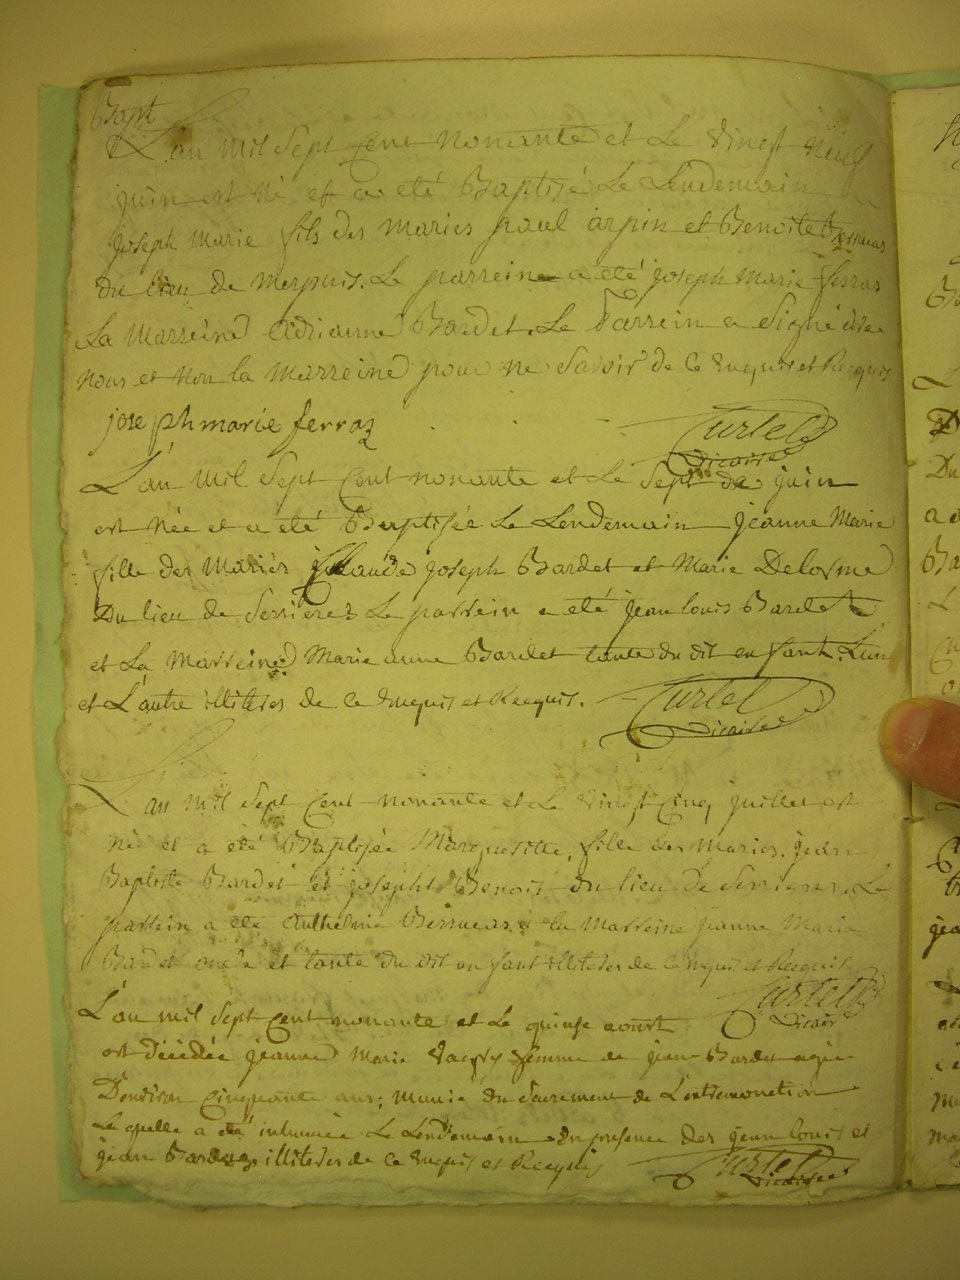 Bapt
L'an mil sept cent nonante et Le vingt neuf
juin est né et a eté Baptisé Le Lendemain
joseph Marie fils des maries paul arpin et Benoite
du lieu de Le parrein a eté joseph Marie ferras
La Marreine Bardet. Le Parrein a signé avec
nous et non la marreine pour ne savoir de ce enquis et Requis
joseph marie ferraz Curtet
vicaire
L'an mil sept cent nonante et Le sept de juin
est Née et a eté Baptisée Le Lendemain jeanne Marie
fille des Mariés Claude joseph Bardet et Marie Delorme
Du lieu de serrierez Le parrein a eté jean louis Bardet
et La Marreine Marie anne Bardet tante du dit enfant. L'un
et L'autre illiteres de ce enquis et Requis. Curtet
vicaire
L'an mil sept cent nonante et Le vingt cinq juillet est
né et a eté Baptisée Margueritte, fille des Maries. jean
Baptiste Bardet et josephte Benoit du lieu de serrieres. Le
parrein a eté anthelme la Marreine jeanne Marie
Bardet oncle et tante du dit enfant illiteres de ce enquis et Requis
Curtet
vicaire
L'an mil sept cent nonante et Le quinze aoust
est décédée jeanne Marie femme de jean Bardet agée
D'environ cinquante ans; munie du sacrement de L'extremonction
Laquelle a eté inhumée Le Lendemain en presence des jean louis et
jean Bardet illiteres de ce enquis et Requis Curtet
vicaire